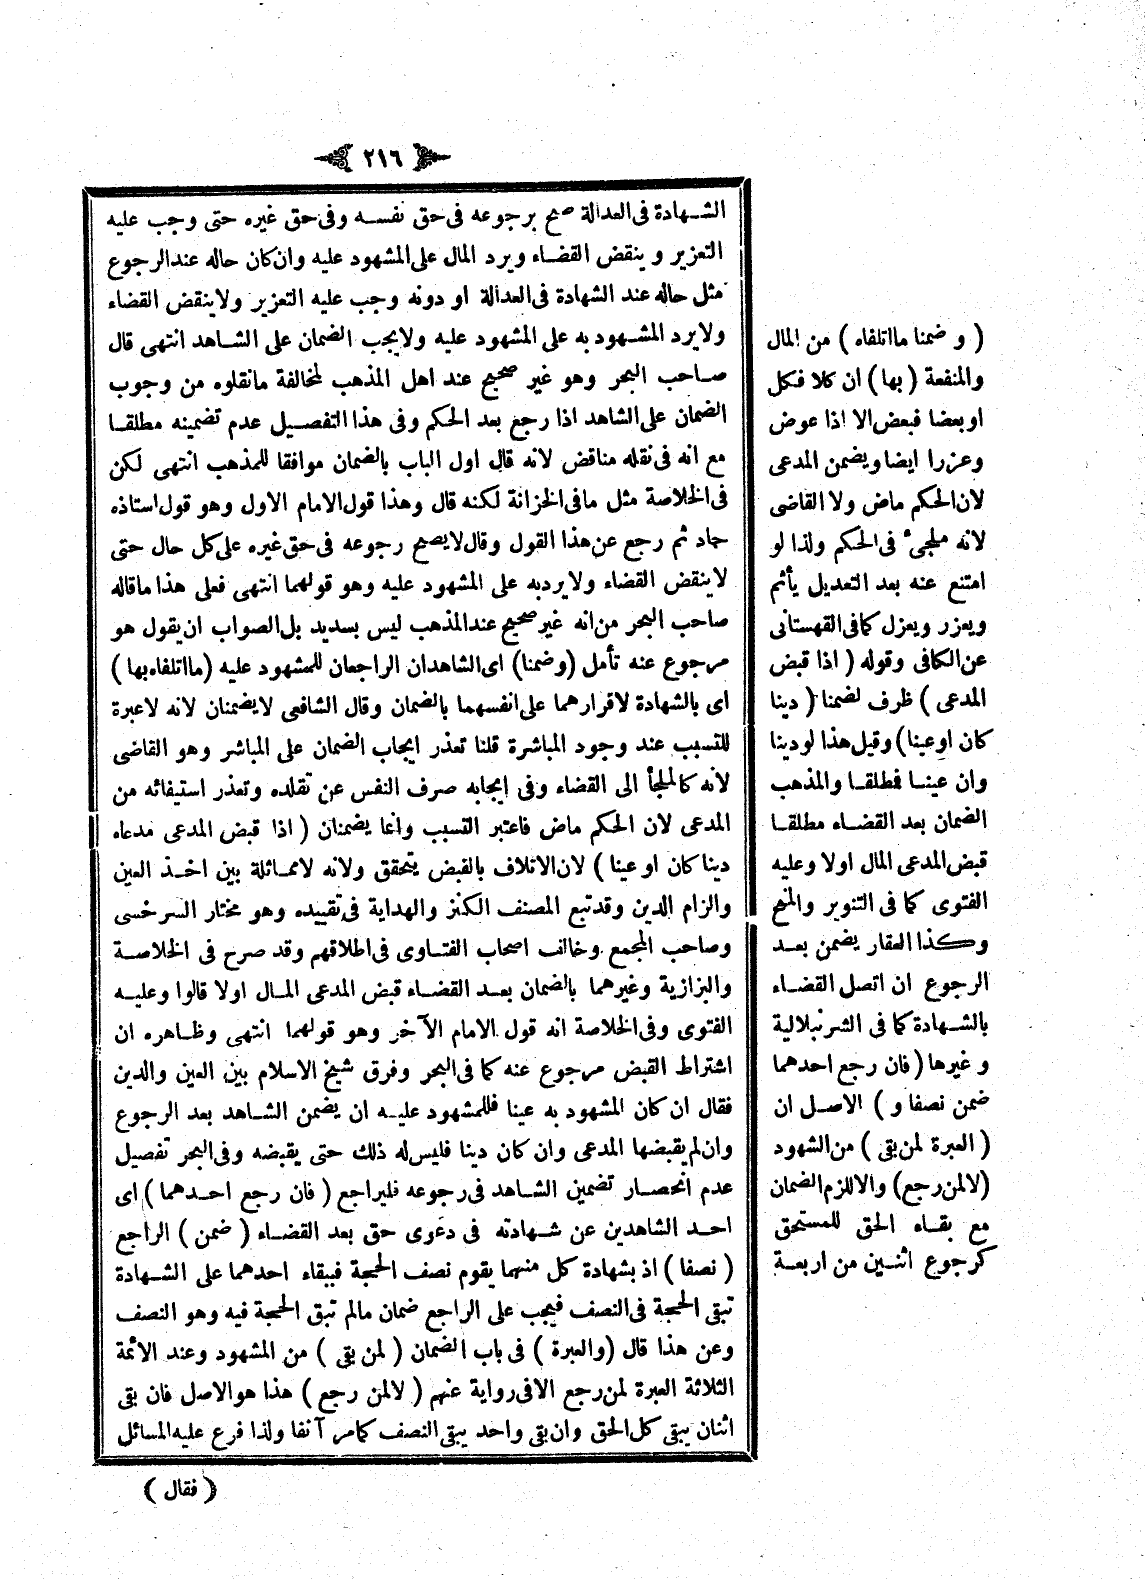 ٢١٦
الشهادة فى العدالة صح برجوعه فى حق نفسه وفى حق غيره حتى وجب عليه
التعزير و ينقض القضاء ويرد المال على المشهود عليه وان كان حاله عند الرجوع
مثل حاله عند الشهادة فى العدالة او دونه وجب عليه التعزير ولا ينقض القضاء
ولا يرد المشهود به على المشهود عليه ولا يجب الضمان على الشاهد انتهى قال
صاحب البحر وهو غير صحيح عند اهل المذهب لمخالفة مانقلوه من وجوب
الضمان على الشاهد اذا رجع بعد الحكم وفى هذا التفصيل عدم تضمينه مطلقا
مع انه فى نقله مناقض لانه قال اول الباب بالضمان موافقا للمذهب انتهى لكن
فى الخلاصة مثل مافى الخزانة لكنه قال وهذا قول الامام الاول وهو قول استاذه
حماد ثم رجع عن هذا القول وقال لا يصح رجوعه فى حق غيره على كل حال حتى
لا ينقض القضاء ولا يرد به على المشهود عليه وهو قولهما انتهى فعلى هذا ماقاله
صاحب البحر من انه غير صحيح عند المذهب ليس بسديد بل الصواب ان يقول هو
مرجوع عنه تأمل (وضمنا) اى الشاهدان الراجعان للمشهود عليه (ما اتلفاه بها)
اى بالشهادة لاقرارهما على انفسهما بالضمان وقال الشافعى لا يضمنان لانه لاعبرة
للتسبب عند وجود المباشرة قلنا تعذر ايجاب الضمان على المباشر وهو القاضى
لانه كالملجأ الى القضاء وفى ايجابه صرف النفس عن تقلده وتعذر استيفائه من
المدعى لان الحكم ماض فاعتبر التسبب وانما يضمنان ( اذا قبض المدعى مدعاه
دينا كان او عينا ) لان الاتلاف بالقبض يتحقق ولانه لا مماثلة بين اخذ العين
والزام الدين وقد تبع المصنف الكنز والهداية فى تقييده وهو مختار السرخسى
وصاحب المجمع وخالف اصحاب الفتاوى فى اطلاقهم وقد صرح فى الخلاصة
والبزازية وغيرهما بالضمان بعد القضاء قبض المدعى المال اولا قالوا وعليه
الفتوى وفى الخلاصة انه قول الامام الآخر وهو قولهما انتهى وظاهره ان
اشتراط القبض مرجوع عنه كما فى البحر وفرق شيخ الاسلام بين العين والدين
فقال ان كان المشهود به عينا فللمشهود عليه ان يضمن الشاهد بعد الرجوع
وان لم يقبضها المدعى وان كان دينا فليس له ذلك حتى يقبضه وفى البحر تفصيل
عدم انحصار تضمين الشاهد فى رجوعه فليراجع ( فان رجع احدهما ) اى
احد الشاهدين عن شهادته فى دعوى حق بعد القضاء ( ضمن ) الراجع
( نصفا ) اذ بشهادة كل منهما يقوم نصف الحجة فببقاء احدهما على الشهادة
تبقى الحجة فى النصف فيجب على الراجع ضمان مالم تبق الحجة فيه وهو النصف
وعن هذا قال (والعبرة ) فى باب الضمان ( لمن بقى ) من المشهود وعند الائمة
الثلاثة العبرة لمن رجع الا فى رواية عنهم ( لا لمن رجع ) هذا هو الاصل فان بقى
اثنان يبقى كل الحق وان بقى واحد يبقى النصف كما مر آنفا ولذا فرع عليه المسائل
( وضمنا ما اتلفاه ) من المال
والمنفعة ( بها ) ان كلا فكل
او بعضا فبعض الا اذا عوض
وعزرا ايضا ويضمن المدعى
لان الحكم ماض ولا القاضى
لانه ملجىء فى الحكم ولذا لو
امتنع عنه بعد التعديل يأثم
ويعزر ويعزل كما فى القهستانى
عن الكافى وقوله ( اذا قبض
المدعى ) ظرف لضمنا ( دينا
كان او عينا) وقيل هذا لو دينا
وان عينا فطلقا والمذهب
الضمان بعد القضاء مطلقا
قبض المدعى المال اولا وعليه
الفتوى كما فى التنوير والمنح
وكذا العقار يضمن بعد
الرجوع ان اتصل القضاء
بالشهادة كما فى الشرنبلالية
وغيرها ( فان رجع احدهما
ضمن نصفا و ) الاصل ان
( العبرة لمن بقى ) من الشهود
(لا لمن رجع) والا للزم الضمان
مع بقاء الحق للمستحق
كرجوع اثنين من اربعة
( فقال )